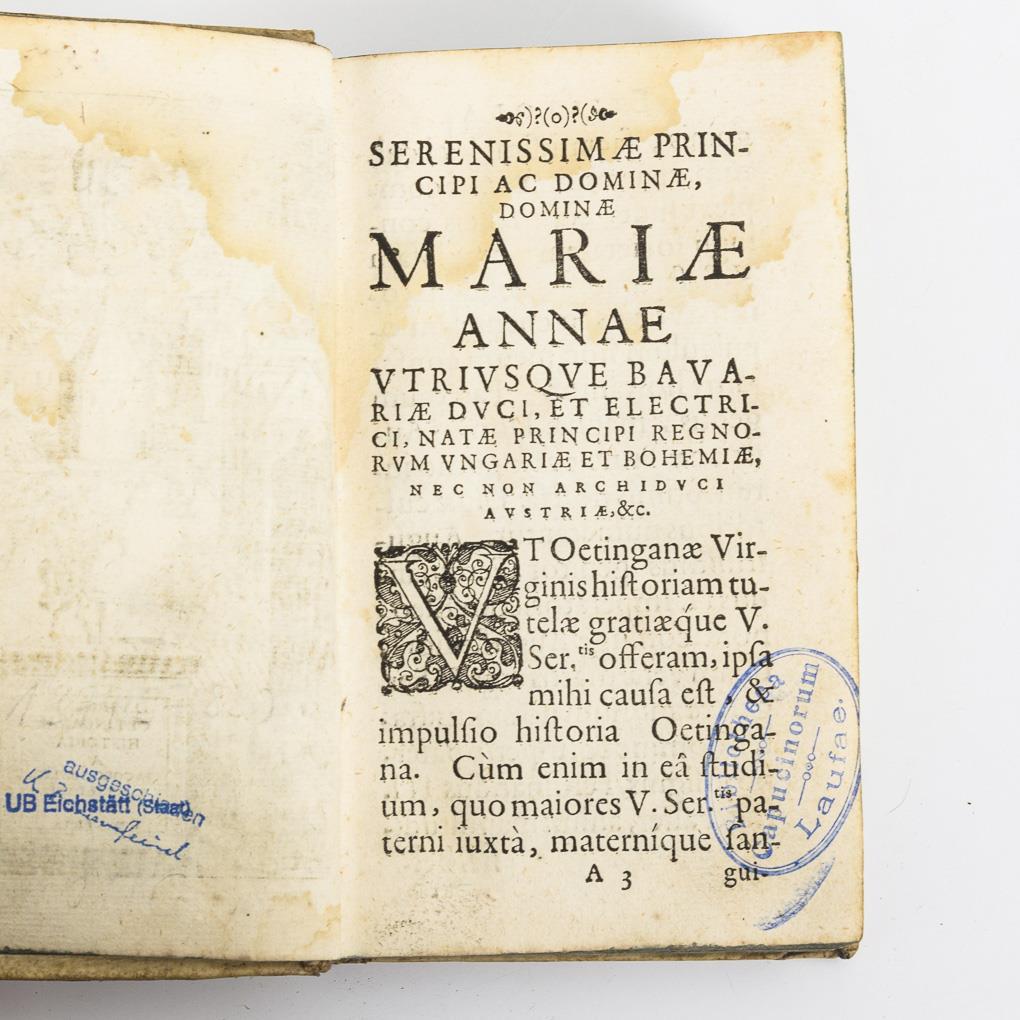 ausgeschieden
UB Eichstätt (Staatl)
SERENISSIMÆ PRIN-
CIPI AC DOMINÆ,
DOMINÆ
MARIÆ
ANNAE
VTRIVSQVE BAVA-
RIÆ DVCI, ET ELECTRI-
CI, NATÆ PRINCIPI REGNO-
RVM VNGARIÆ ET BOHEMIÆ,
NEC NON ARCHIDVCI
AVSTRIÆ, &c.
VT Oetinganæ Vir-
ginis hiſtoriam tu-
telæ gratiæq́ue V.
Ser.tis offeram, ipſa
mihi cauſa eſt, &
impulſio hiſtoria Oetinga-
na. Cùm enim in eâ ſtudi-
um, quo maiores V. Ser.tis pa-
terni iuxtà, materníque ſan-
A 3 gui-
Bibliotheca
Capucinorum
Laufae.